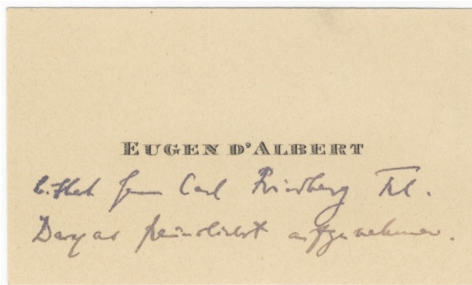 EUGEN D'ALBERT
bittet Herrn Carl Friedberg Frl.
freundlichst aufzunehmen.